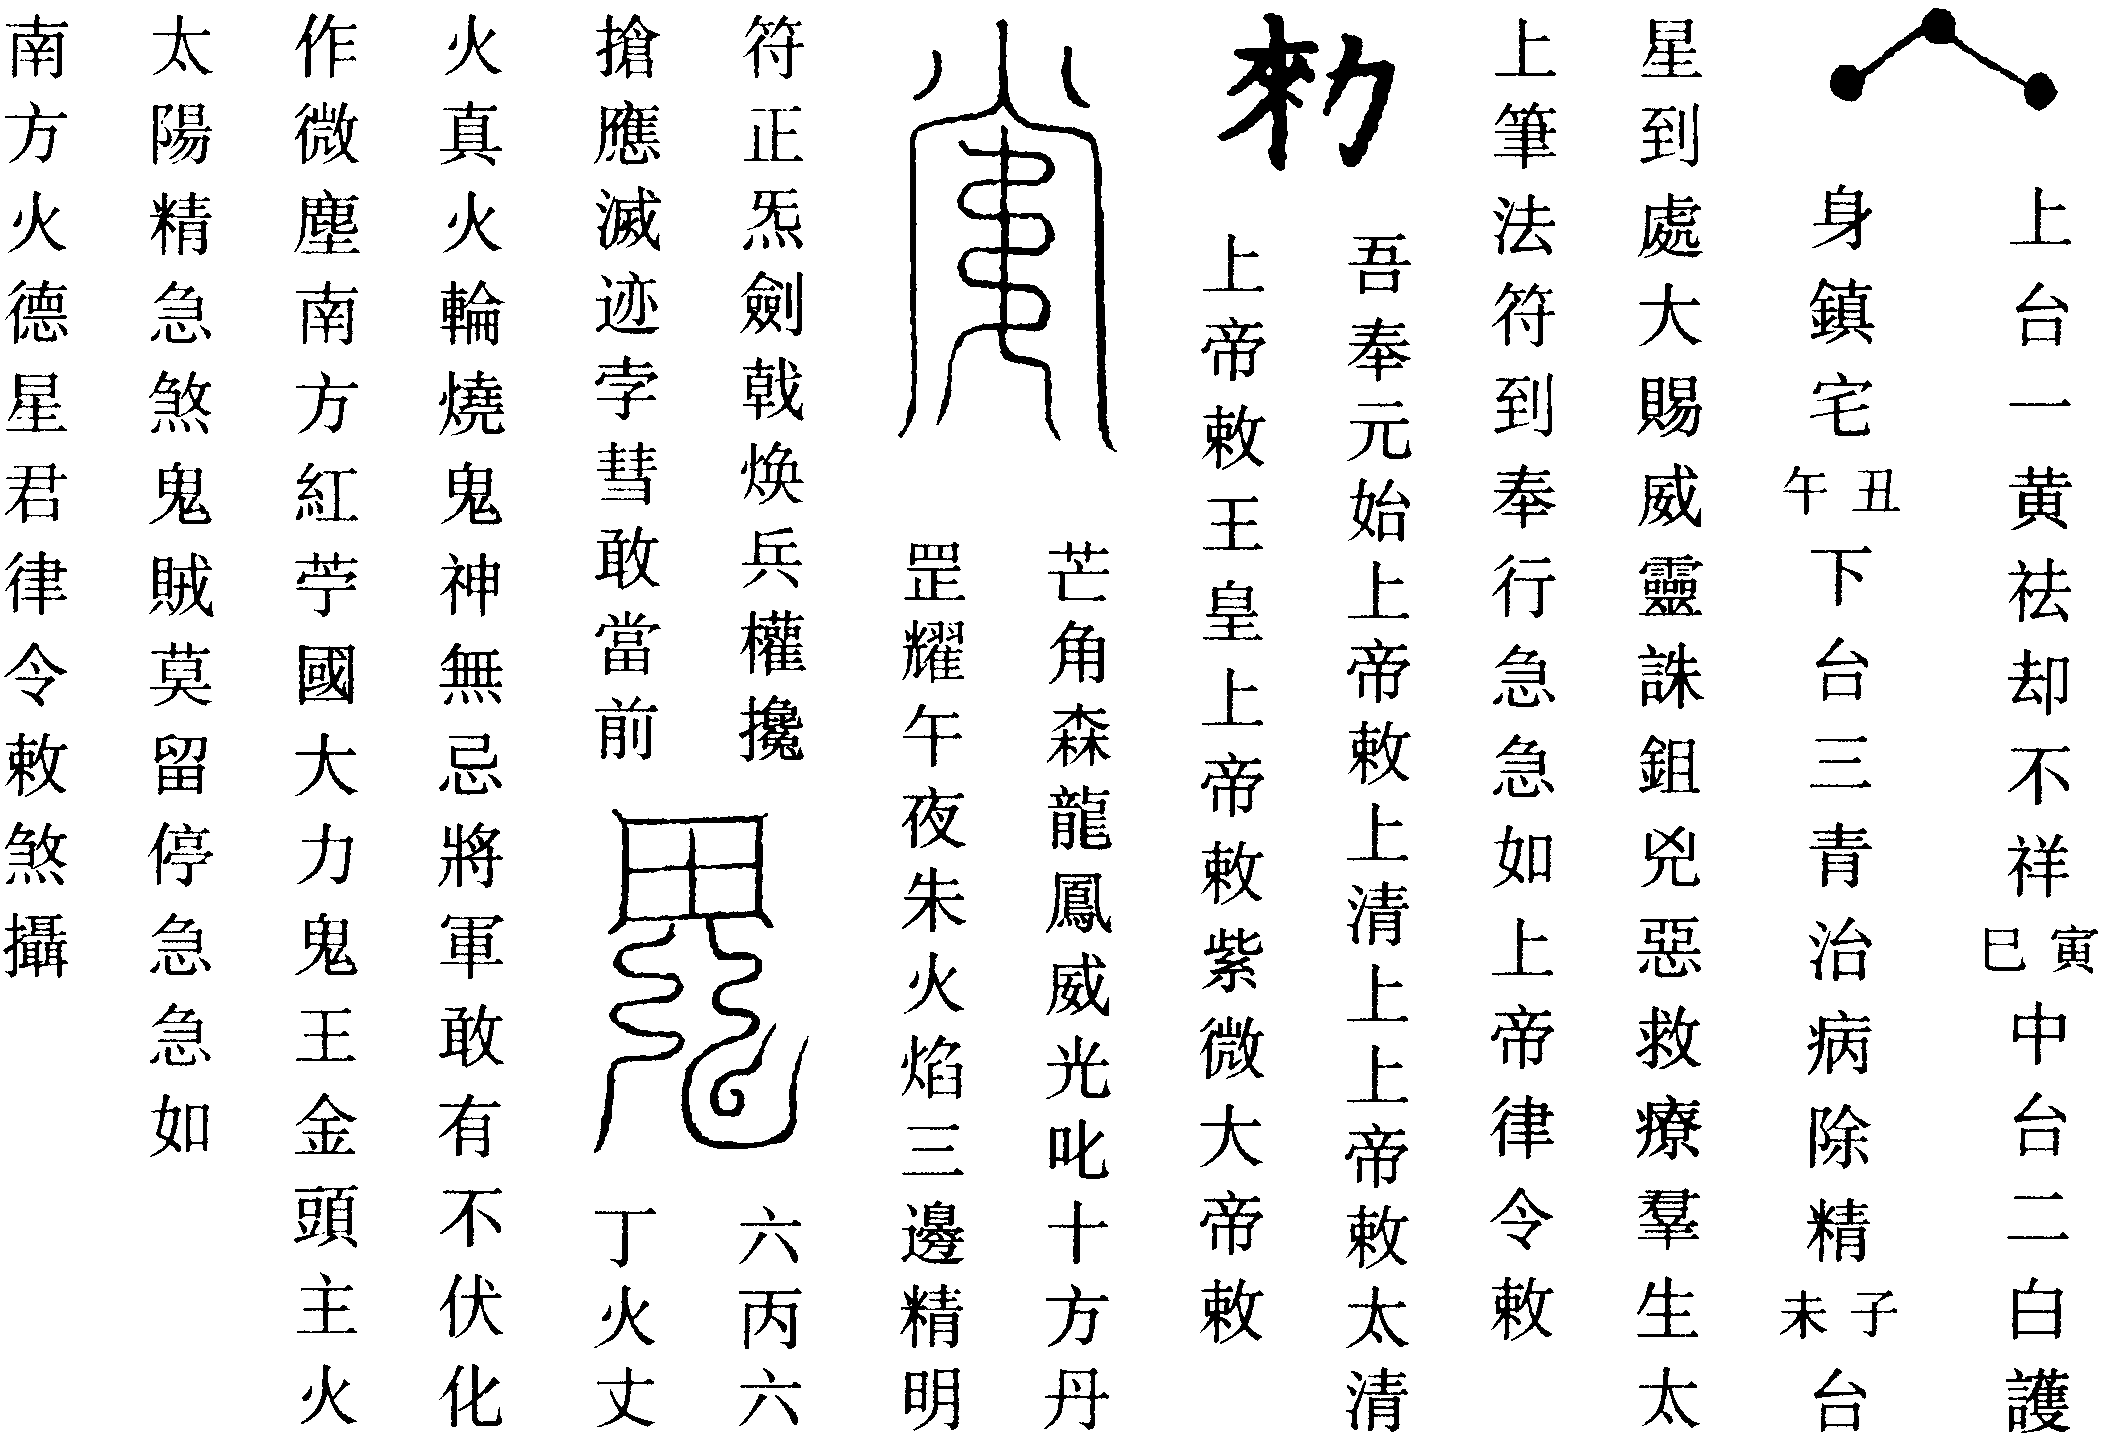 上台一黄祛却不祥寅巳中台二白護
身鎮宅丑午下台三青治病除精子未台
星到處大賜威靈誅鉏兇惡救療羣生太
上筆法符到奉行急急如上帝律令敕
勑
吾奉元始上帝敕上清上上帝敕太清
上帝敕王皇上帝敕紫微大帝敕
芒角森龍鳳威光叱十方丹
罡耀午夜朱火焰三邊精明
符正炁劍戟焕兵權攙
搶應滅迹孛彗敢當前
六丙六
丁火丈
火真火輪燒鬼神無忌將軍敢有不伏化
作微塵南方紅苧國大力鬼王金頭主火
太陽精急煞鬼賊莫留停急急如
南方火德星君律令敕煞攝